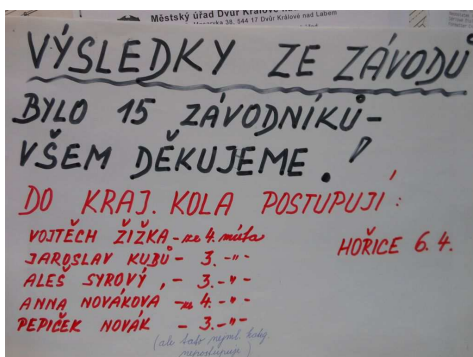 Městský úřad Dvůr Králové
38, 544 17 Dvůr Králové nad Labem
VÝSLEDKY ZE ZÁVODŮ
BYLO 15 ZÁVODNÍKŮ-
VŠEM DĚKUJEME.!
DO KRAJ. KOLA POSTUPUJÍ:
VOJTĚCH ŽIŽKA - ze 4. místa
JAROSLAV KUBŮ - 3. -"-
HOŘICE 6.4.
ALEŠ SYROVÝ, - 3. -"-
ANNA NOVÁKOVA - 4. -"-
PEPIČEK NOVÁK - 3. -"-
(ale tato nejml. kateg.
nepostupuje)